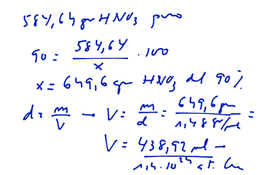 584,64 gr HNO₃ puro
90 = 584,64 / x · 100
x = 649,6 gr HNO₃ del 90%
d = m / V → V = m / d = 649,6 gr / 1,48 gr/ml =
V = 438,92 ml